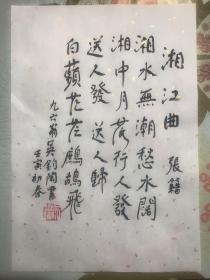 湘江曲 張籍
湘水無潮愁水闊
湘中月落行人發
送人發 送人歸
白蘋茫茫鷓鴣飛
九六翁吳鈞陶書
壬寅初春